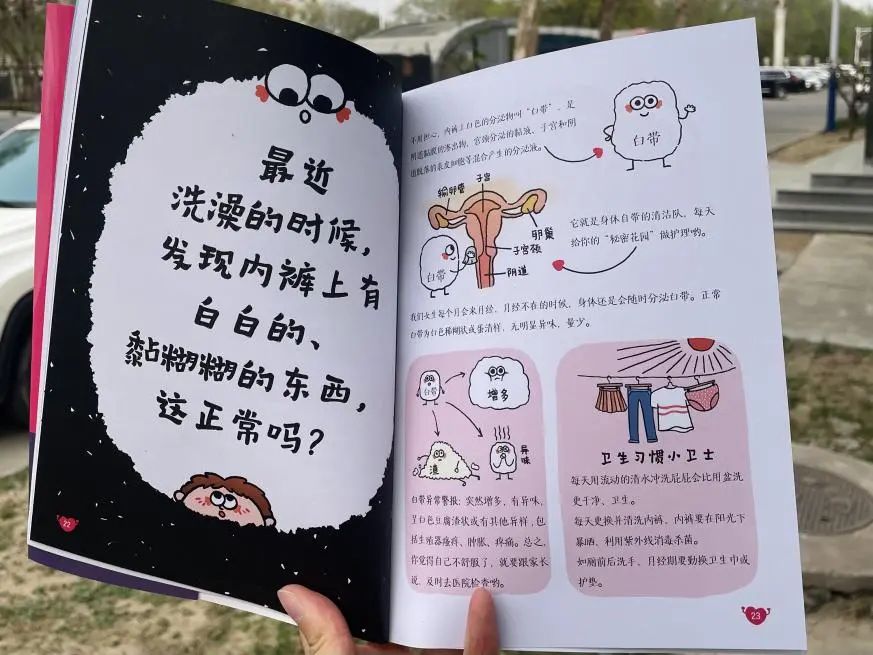 最近
洗澡的时候，
发现内裤上有
白白的、
黏糊糊的东西，
这正常吗？
22
不用担心，内裤上白色的分泌物叫“白带”，是
阴道黏膜的渗出物、宫颈分泌的黏液、子宫和阴
道脱落的表皮细胞等混合产生的分泌液。
白带
输卵管
子宫
卵巢
子宫颈
阴道
白带
它就是身体自带的清洁队，每天
给你的“秘密花园”做护理哟。
我们女生每个月会来月经，月经不在的时候，身体还是会随时分泌白带。正常
白带为白色稀糊状或蛋清样，无明显异味，量少。
白带
增多
渣
异味
白带异常警报：突然增多，有异味，
呈白色豆腐渣状或有其他异样，包
括生殖器瘙痒、肿胀、疼痛。总之，
你觉得自己不舒服了，就要跟家长
说，及时去医院检查哟。
卫生习惯小卫士
每天用流动的清水冲洗屁屁会比用盆洗
更干净、卫生。
每天更换并清洗内裤，内裤要在阳光下
暴晒，利用紫外线消毒杀菌。
如厕前后洗手，月经期要勤换卫生巾或
护垫。
23